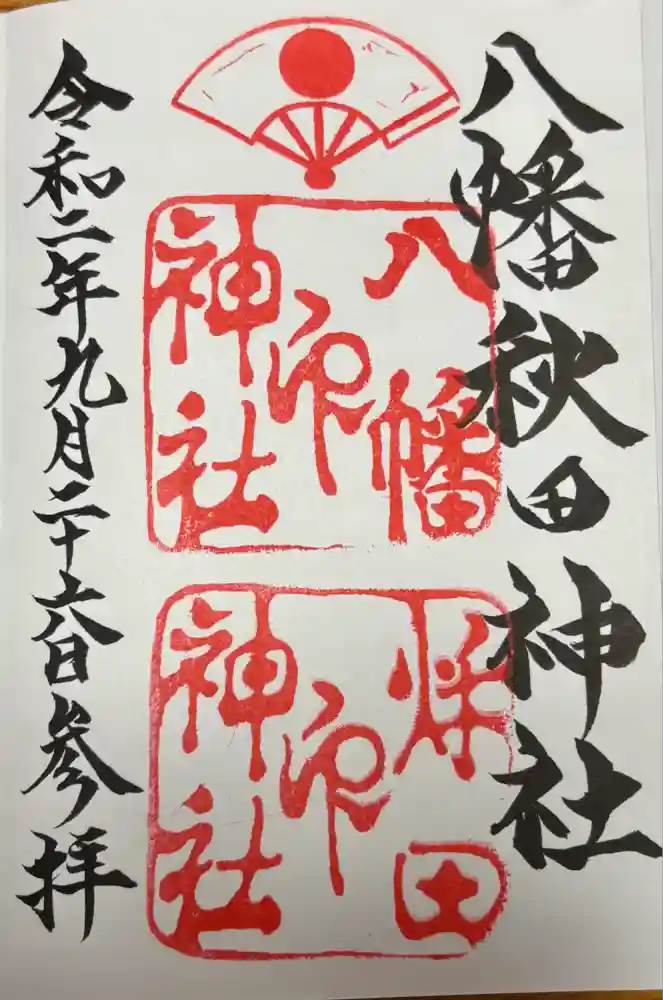 八幡秋田神社
八幡
印
神社
秌田
印
神社
令和二年九月二十六日参拝